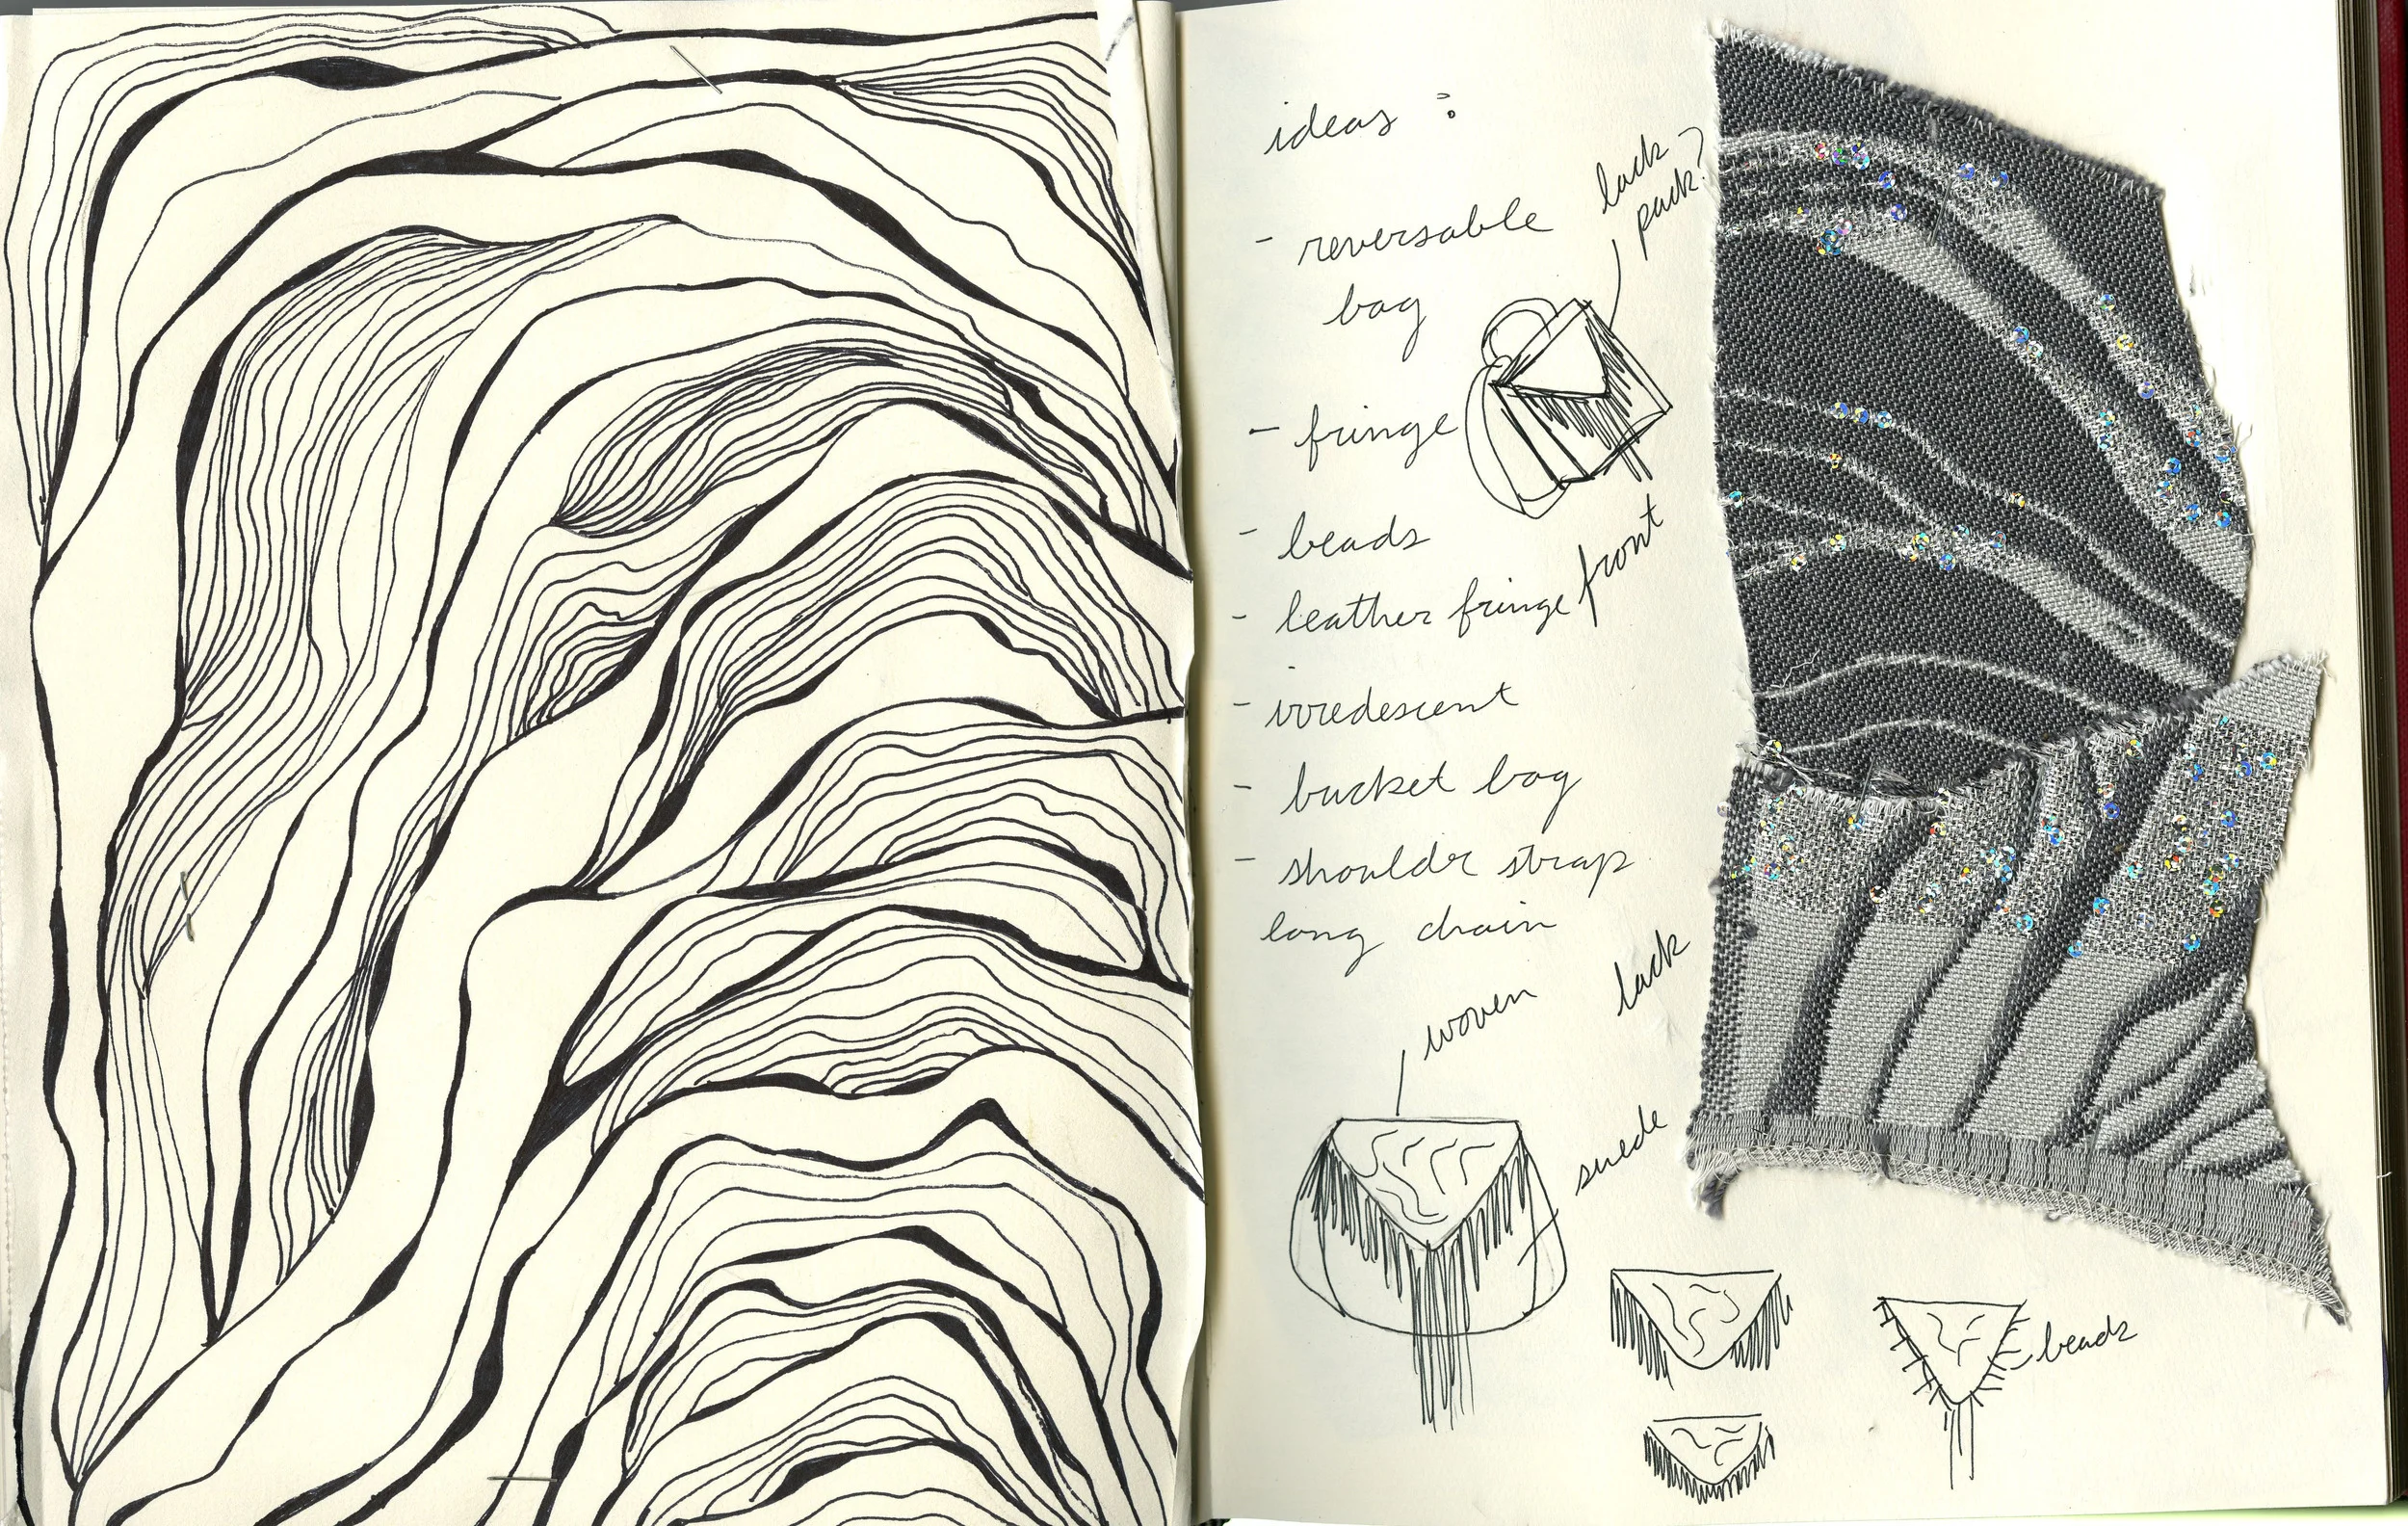 ideas :
- reversable
bag
back
pack?
- fringe
- beads
- leather fringe front
- irredescent
- bucket bag
- shoulder strap
long chain
woven
back
suede
beads